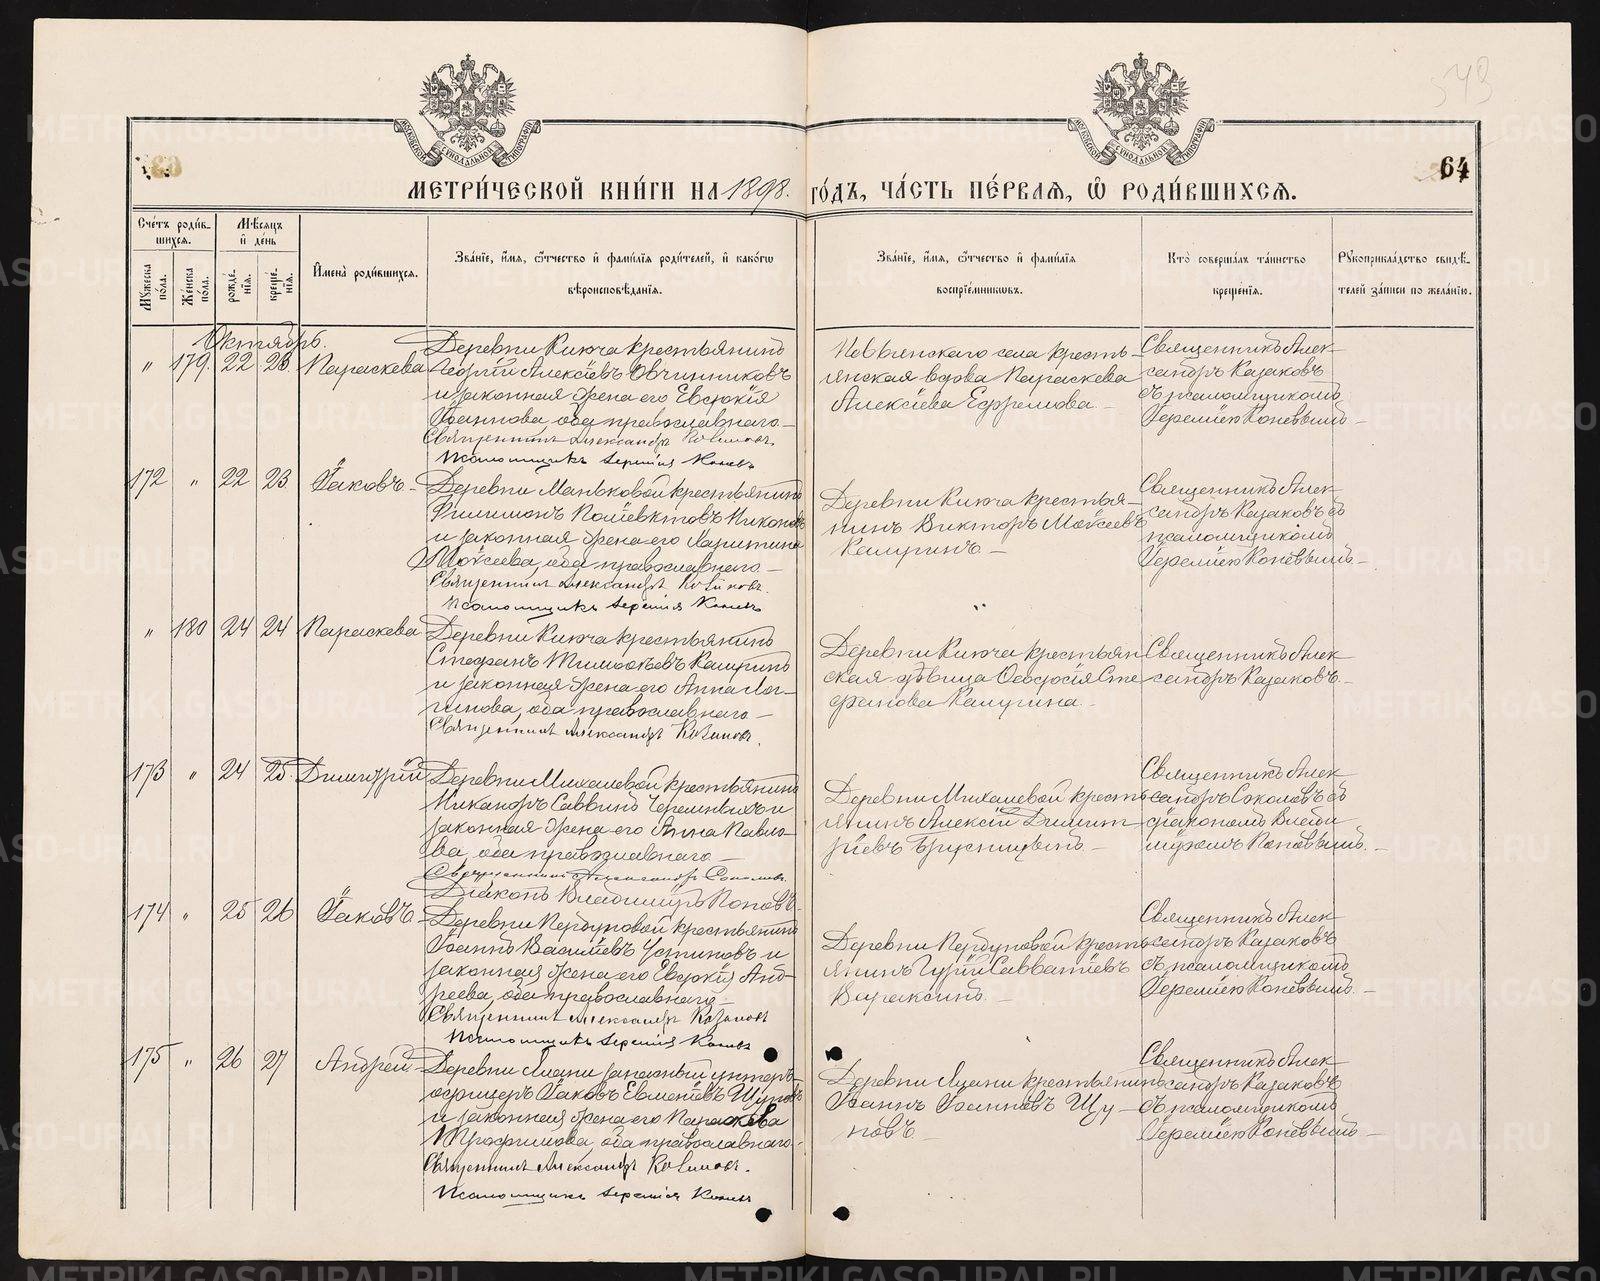 543
64
МЕТРИ́ЧЕСКОЙ КНИ́ГИ НА 1898. ГО́ДЪ, ЧА́СТЬ ПЕ́РВАЯ, Ѽ РОДИ́ВШИХСЯ.
Сче́тъ роди́вшихся.
Мѣсяцъ и҆ де́нь
Мꙋжеска по́ла.
Же́нска по́ла.
рожде́нїѧ.
креще́нїѧ.
И҆мена̀ роди́вшихся.
Зва́нїе, и҆́мѧ, ѻ҆́тчество и҆ фами́лїѧ роди́телей, и҆ како́гѡ
вѣроисповѣ́данїѧ.
Зва́нїе, и҆́мѧ, ѻ҆́тчество и҆ фами́лїѧ
воспрїе́мникѡвъ.
Кто̀ соверша́лъ та́инство
креще́нїѧ.
Рꙋкоприкла́дство свидѣ́телей за́писи по жела́нїю.
Октябрь.
" 179. 22 23. Параскева
Деревни Ключа крестьянинъ
Георгій Алексіевъ Овчинниковъ
и законная жена его Евдокія
Іоаннова, оба православнаго.
Священникъ Александръ Казаковъ.
Псаломщикъ Іеремія Коневъ
крестьянская вдова Параскева
Алексіева Ефремова.
Священникъ Александръ Казаковъ
съ псаломщикомъ
Іереміею Коневымъ.
172 " 22 23 Іаковъ
Деревни Маньковой крестьянинъ
Филимонъ Поліевктовъ
и законная жена его Харитина
Моѵсеева, оба православнаго.
Священникъ Александръ Казаковъ.
Псаломщикъ Іеремія Коневъ
Деревни Ключа крестьянинъ Викторъ Моѵсеевъ
Калугинъ
Священникъ Александръ Казаковъ съ
псаломщикомъ
Іереміею Коневымъ.
" 180 24 24 Параскева
Деревни Ключа крестьянинъ
Стефанъ Тимоѳеевъ Калугинъ
и законная жена его Анна Логгинова, оба православнаго.
Священникъ Александръ Казаковъ.
Деревни Ключа крестьянская дѣвица Ѳеодосія Стефанова Калугина.
Священникъ Александръ Казаковъ.
173 " 24 25. Димитрій
Деревни Михалевой крестьянинъ
Никаноръ Саввинъ Черемныхъ и
законная жена его Анна Павлова, оба православнаго
Священникъ Александръ Соколовъ.
Діаконъ Владиміръ Поповъ.
Деревни Михалевой крестьянинъ Алексій Димитріевъ Брусницынъ
Священникъ Александръ Соколовъ съ
діакономъ Владиміромъ Поповымъ.
174 " 25 26 Іаковъ
крестьянинъ
Іоаннъ Василіевъ Устиновъ и
законная жена его Евдокія Андреева, оба православнаго
Священникъ Александръ Казаковъ
Псаломщикъ Іеремія Коневъ
крестьянинъ Гурій Савватіевъ
Вараксинъ.
Священникъ Александръ Казаковъ
съ псаломщикомъ
Іереміею Коневымъ.
175 " 26 27 Андрей
Деревни Лягы запасный унтеръ-
офицеръ Іаковъ Евменіевъ Щуповъ
и законная жена его Параскева
Трофимова, оба православнаго.
Священникъ Александръ Казаковъ.
Псаломщикъ Іеремія Коневъ
крестьянинъ
Іоаннъ Іоанновъ Щуповъ
Священникъ Александръ Казаковъ
съ псаломщикомъ
Іереміею Коневымъ
METRIKI.GASO-URAL.RU